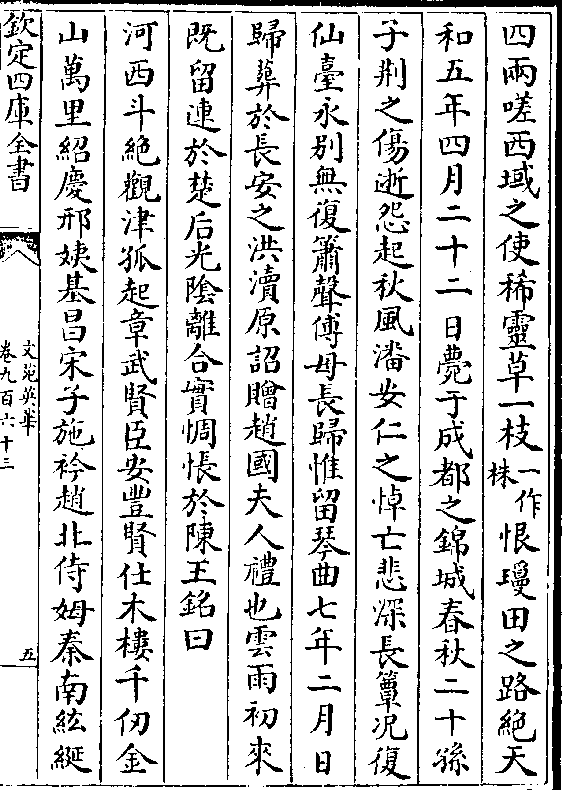 四兩嗟西域之使稀靈草一枝一作株恨瓊田之路絶天
和五年四月二十二日薨于成都之錦城春秋二十孫
子荆之傷逝怨起秋風潘安仁之悼亡悲深長簟况復
仙臺永别無復簫聲傅母長歸惟留琴曲七年二月日
歸葬於長安之洪瀆原詔贈趙國夫人禮也雲雨初來
既留連於楚后光陰離合實惆悵於陳王銘曰
河西斗絶觀津孤起章武賢臣安豐賢仕木樓千仞金
山萬里紹慶邢姨基昌宋子施衿趙北侍姆秦南紘綖
欽定四庫全書
文苑英華
卷九百六十三
五